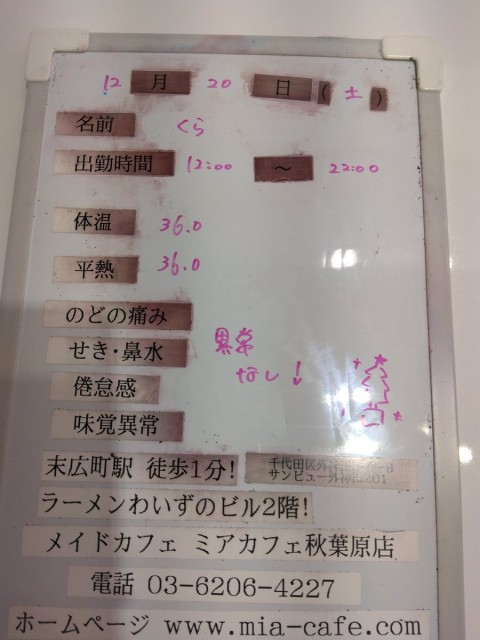 12月20日(土)
名前 くら
出勤時間 12:00 ～ 22:00
体温 36.0
平熱 36.0
のどの痛み
せき・鼻水
倦怠感
味覚異常
異常
なし!
末広町駅 徒歩1分!
千代田区外神田
サンビュー外神田201
ラーメンわいずのビル2階!
メイドカフェ ミアカフェ秋葉原店
電話 03-6206-4227
ホームページ www.mia-cafe.com